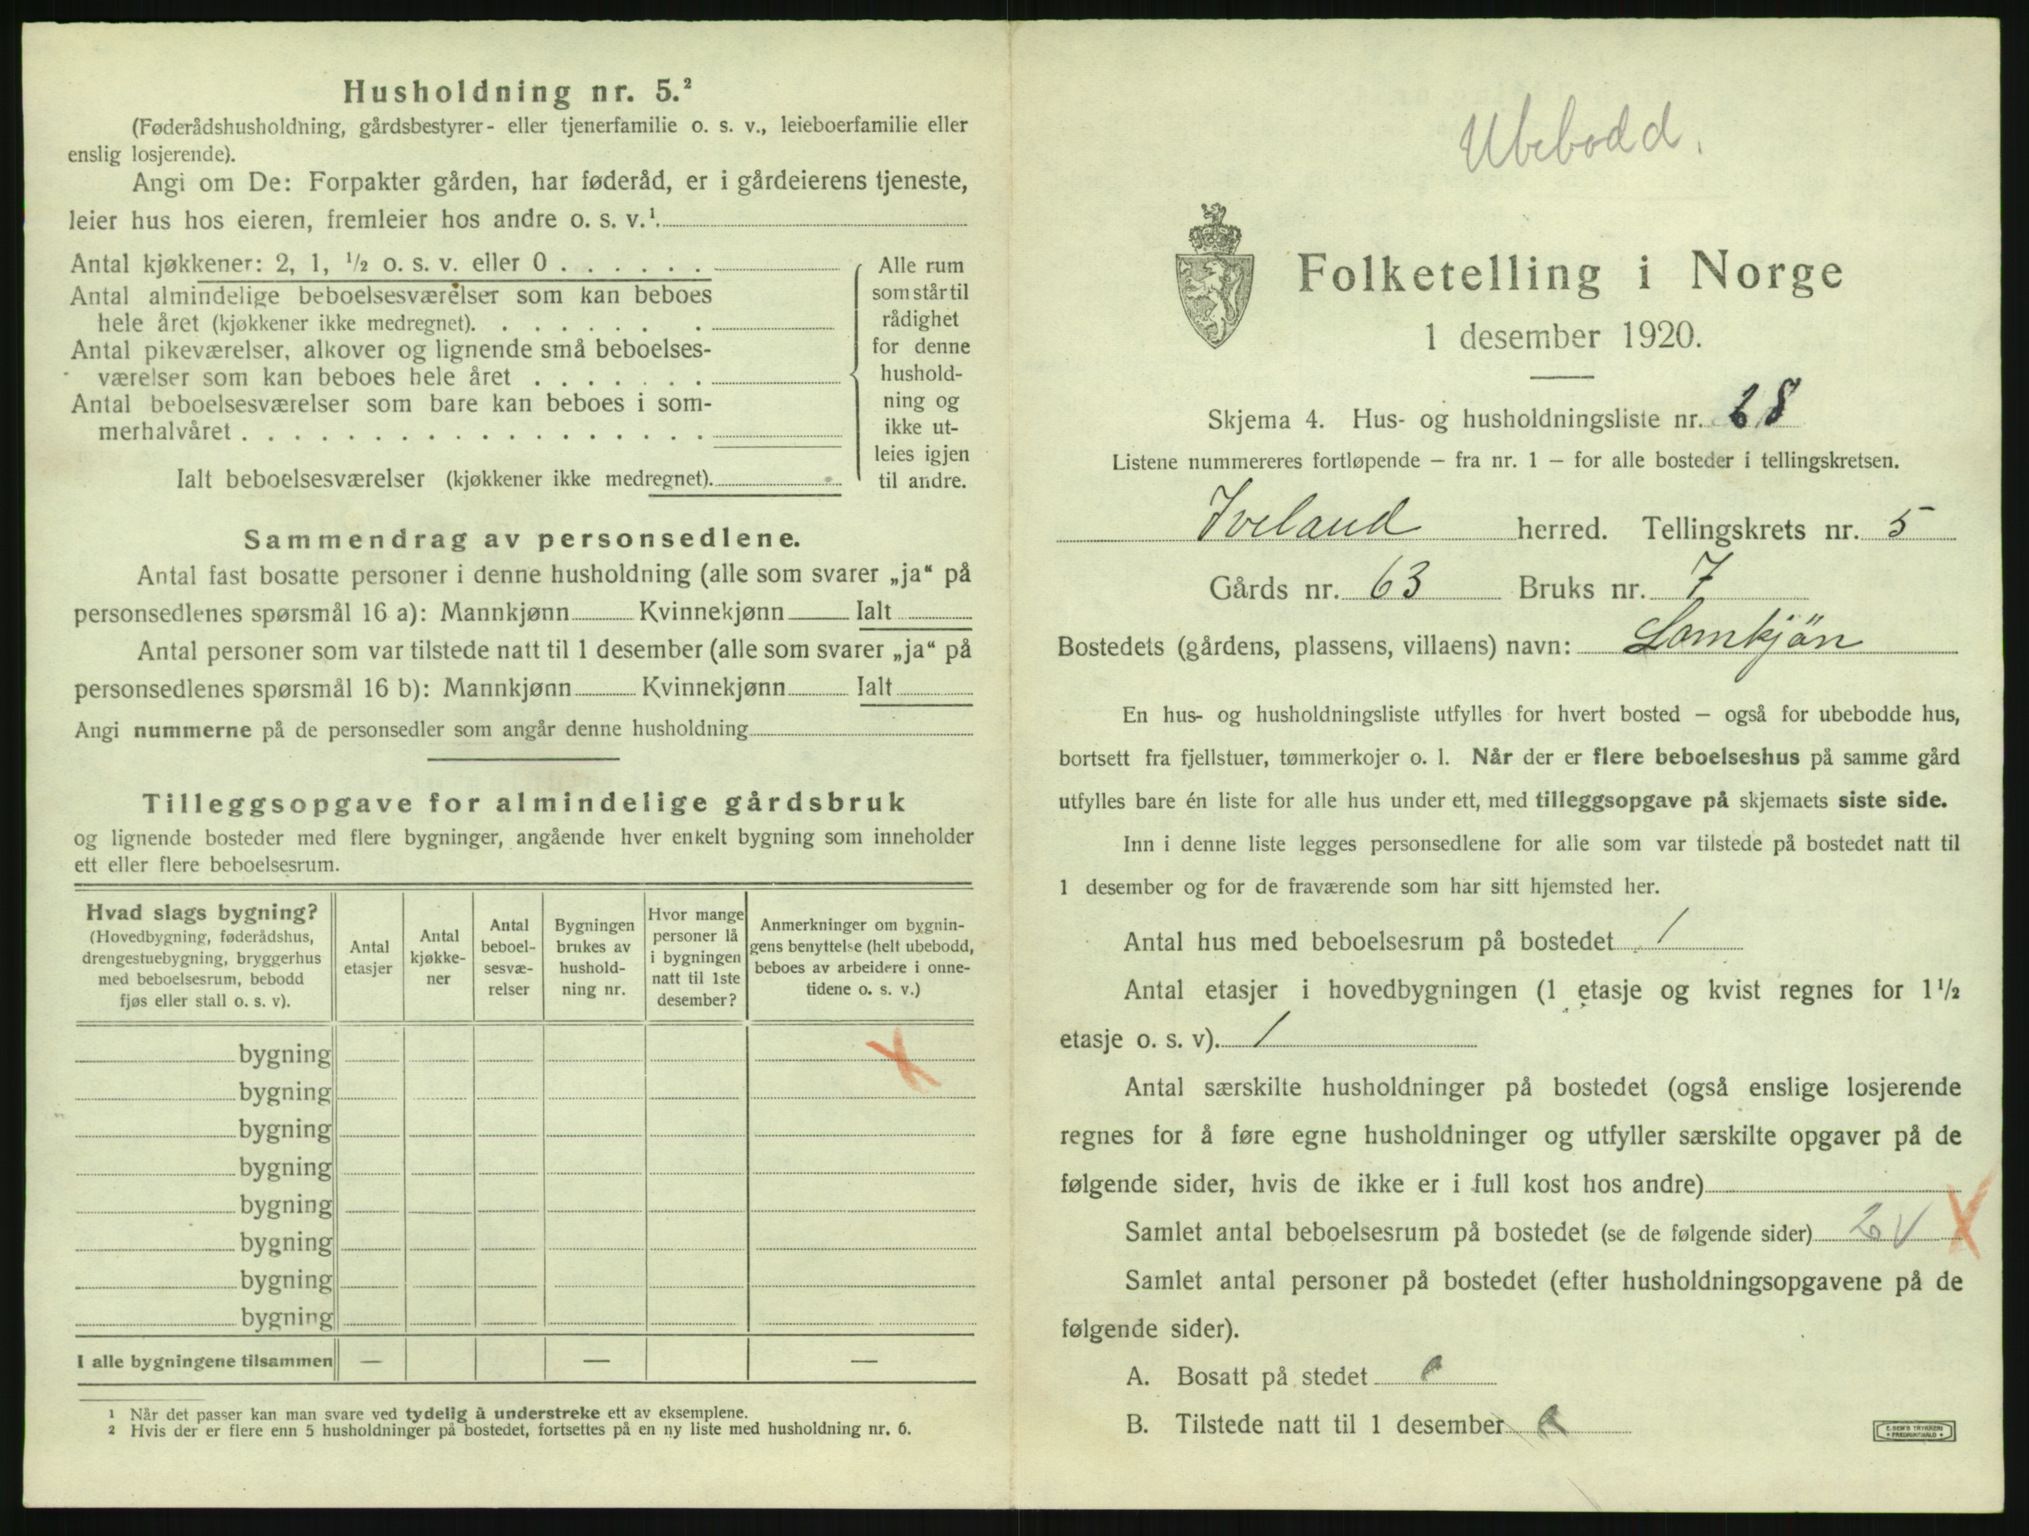 Husholdning nr. 5.²
(Føderådshusholdning, gårdsbestyrer- eller tjenerfamilie o. s. v., leieboerfamilie eller
enslig losjerende).
Angi om De: Forpakter gården, har føderåd, er i gårdeierens tjeneste,
leier hus hos eieren, fremleier hos andre o. s. v.¹
Antal kjøkkener: 2, 1, ½ o. s. v. eller 0 . . . . . .
Antal almindelige beboelsesværelser som kan beboes
hele året (kjøkkener ikke medregnet). . . . . . . .
Antal pikeværelser, alkover og lignende små beboelses-
værelser som kan beboes hele året . . . . . . .
Antal beboelsesværelser som bare kan beboes i som-
merhalvåret . . . . . . . . . . . . . . . . .
Ialt beboelsesværelser (kjøkkener ikke medregnet).
Alle rum
som står til
rådighet
for denne
hushold-
ning og
ikke ut-
leies igjen
til andre.
Sammendrag av personsedlene.
Antal fast bosatte personer i denne husholdning (alle som svarer „ja“ på
personsedlenes spørsmål 16 a): Mannkjønn Kvinnekjønn Ialt
Antal personer som var tilstede natt til 1 desember (alle som svarer „ja“ på
personsedlenes spørsmål 16 b): Mannkjønn Kvinnekjønn Ialt
Angi nummerne på de personsedler som angår denne husholdning
Tilleggsopgave for almindelige gårdsbruk
og lignende bosteder med flere bygninger, angående hver enkelt bygning som inneholder
ett eller flere beboelsesrum.
Hvad slags bygning?
(Hovedbygning, føderådshus,
drengestuebygning, bryggerhus
med beboelsesrum, bebodd
fjøs eller stall o. s. v).
Antal
etasjer
Antal
kjøkke-
ner
Antal
beboel-
sesvæ-
relser
Bygningen
brukes av
hushold-
ning nr.
Hvor mange
personer lå
i bygningen
natt til 1ste
desember?
Anmerkninger om bygnin-
gens benyttelse (helt ubebodd,
beboes av arbeidere i onne-
tidene o. s. v.)
bygning X
bygning
bygning
bygning
bygning
bygning
bygning
bygning
I alle bygningene tilsammen — — —
1 Når det passer kan man svare ved tydelig å understreke ett av eksemplene.
2 Hvis der er flere enn 5 husholdninger på bostedet, fortsettes på en ny liste med husholdning nr. 6.
Ubebodd.
Folketelling i Norge
1 desember 1920.
Skjema 4. Hus- og husholdningsliste nr. 28
Listene nummereres fortløpende – fra nr. 1 – for alle bosteder i tellingskretsen.
Iveland herred. Tellingskrets nr. 5
Gårds nr. 63 Bruks nr. 7
Bostedets (gårdens, plassens, villaens) navn: Lomkjön
En hus- og husholdningsliste utfylles for hvert bosted – også for ubebodde hus,
bortsett fra fjellstuer, tømmerkojer o. l. Når der er flere beboelseshus på samme gård
utfylles bare én liste for alle hus under ett, med tilleggsopgave på skjemaets siste side.
Inn i denne liste legges personsedlene for alle som var tilstede på bostedet natt til
1 desember og for de fraværende som har sitt hjemsted her.
Antal hus med beboelsesrum på bostedet 1
Antal etasjer i hovedbygningen (1 etasje og kvist regnes for 1½
etasje o. s. v). 1
Antal særskilte husholdninger på bostedet (også enslige losjerende
regnes for å føre egne husholdninger og utfyller særskilte opgaver på de
følgende sider, hvis de ikke er i full kost hos andre)
Samlet antal beboelsesrum på bostedet (se de følgende sider) 2 V X
Samlet antal personer på bostedet (efter husholdningsopgavene på de
følgende sider).
A. Bosatt på stedet 0
B. Tilstede natt til 1 desember 0